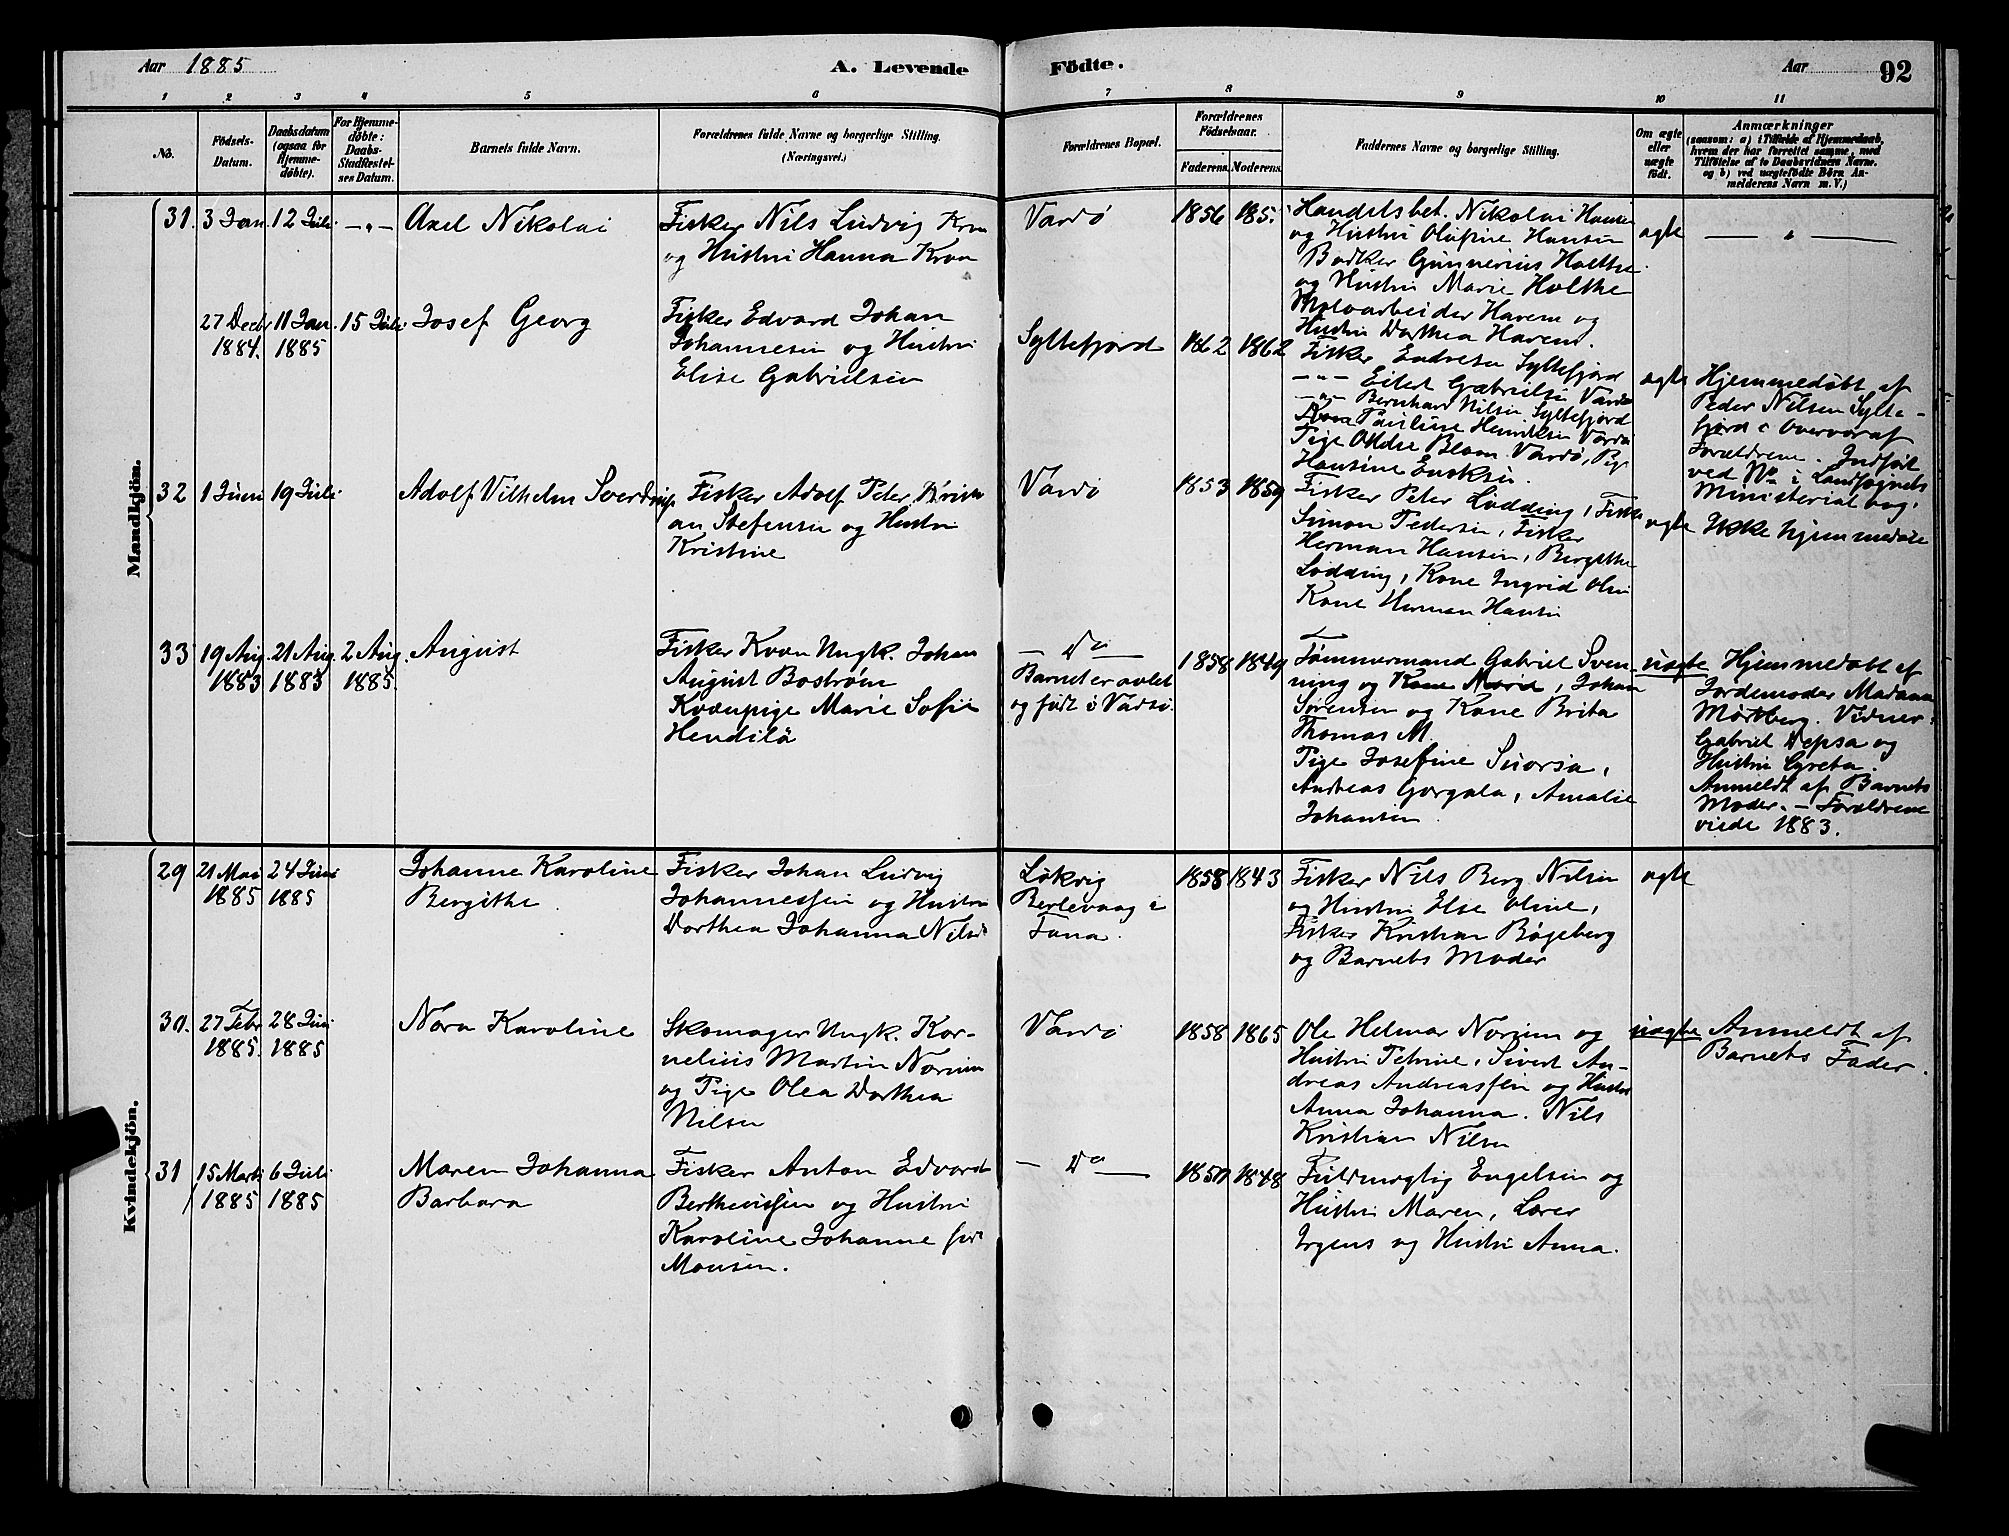 Aar 1885
A. Levende Födte.
Aar 92
1 2 3 4 5 6 7 8 9 10 11
No.
Födsels-Datum.
Daabsdatum (ogsaa for Hjemme-döbte).
For Hjemme-döbte: Daabs-Stadfæstel-ses Datum.
Barnets fulde Navn.
Forældrenes fulde Navne og borgerlige Stilling.
(Næringsvei.)
Forældrenes Bopæl.
Forældrenes Födselsaar.
Faderens. Moderens.
Faddernes Navne og borgerlige Stilling.
Om ægte eller uægte födt.
Anmærkninger
(saasom: a) i Tilfælde af Hjemmedaab, hvem der har forrettet samme, med Tilföielse af to Daabsvidners Navne. og b) ved uægtefödte Börn Anmelderens Navn m. V.)
Mandkjön.
31. 3 Jan 12 Juli —„— Axel Nikolai
Fisker Nils Ludvig Kron
og Hustru Hanna Kron
Vardø 1856 185
Handelsbet. Nikolai Hansen
og Hustru Olufine Hansen
Bødker Gunnerius Holthe
og Hustru Marie Holthe
Moloarbeider Havem og
Hustru Dorthea Havem.
ægte — „ —
27 Decbr 1884. 11 Jan. 1885 15 Juli Josef Georg
Fisker Edvard Johan
Johannesen og Hustru
Elise Gabrielsen
Syltefjord 1862 1862
Fisker Endresen Syltefjord
—„— Eilert Gabrielsen Vardø
—„— Bernhard Nilsen Syltefjord
Kone Pauline Henriksen Vardø
Pige Oldse Blom Vardø, Pige
Hansine Enoksen.
ægte
Hjemmedøbt af
Peder Nilsen Sylte-
fjord i Overvær af
Forældrene. Indført
ved No i Landsognets
Ministerialbog.
32 1 Juni 19 Juli Adolf Vilhelm Sverdrup
Fisker Adolf Peter Kristi
an Stefensen og Hustru
Kristine
Vardø 1853 1859
Fisker Peter Lødding, Fisker
Simon Pedersen, Fisker
Herman Hansen, Bergithe
Lødding, Kone Ingrid Olsen
Kone Herman Hansen
ægte Ikke hjemmedøbt
33 19 Aug. 1883 21 Aug. 1883 2 Aug. 1885. August
Fisker Kvæn Ungk. Johan
August Bostrøm
Kvænpige Marie Sofie
Hendilä
— Do —
Barnet er avlet
og født i Vadsø.
1858 1849
Tømmermand Gabriel Sven-
ning og Kone , Johan
Sørensen og Kone Brita
Thomas M.
Pige Josefine Suorsa,
Andreas Gorgala, Amalie
Johansen
uægte
Hjemmedøbt af
Jordemoder Madame
Mørtberg. Vidner:
Gabriel Depsa og
Hustru Greta.
Anmeldt af Barnets
Moder. — Forældrene
viede 1883.
Kvindekjön.
29 21 Mai 1885 24 Juni 1885 Johanne Karoline
Bergithe
Fisker Johan Ludvig
Johannessen og Hustru
Dorthea Johanna Nilsd.
Løkvig
Berlevaag i
Tana.
1858 1843
Fisker Nils Berg Nilsen
og Hustru Else Oline,
Fisker Kristian Bøgeberg
og Barnets Moder
ægte
30. 27 Febr 1885. 28 Juni 1885 Nora Karoline
Skomager Ungk. Kor-
nelius Martin Norum
og Pige Olea Dorthea
Nilsen
Vardø 1858 1865
Ole Helmar Norum og
Hustru Petrine, Sivert An-
dreas Andreassen og Hustru
Anna Johanna. Nils
Kristian Nilsen
uægte
Anmeldt af
Barnets Fader.
31 15 Marts 1885 6 Juli 1885 Maren Johanna
Barbara
Fisker Anton Edvard
Bertheussen og Hustru
Karoline Johanne før
Monsen.
— Do — 1850 1848
Fuldmægtig Engelsen og
Hustru Maren, Lærer
Irgens og Hustru Anna.